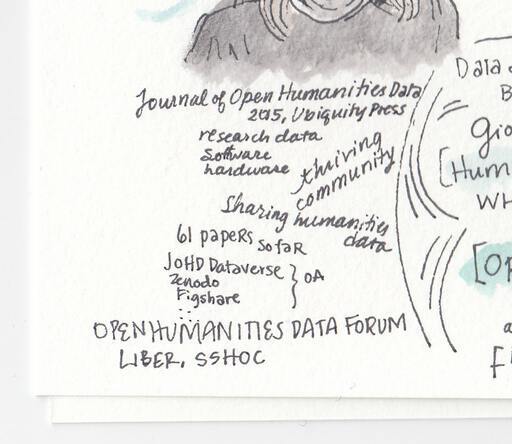 Journal of Open Humanities Data
2015, Ubiquity Press
research data
Software
hardware
thriving
community
Sharing humanities
data
61 papers so far
JOHD Dataverse } OA
Zenodo
Figshare
OPEN HUMANITIES DATA FORUM
LIBER, SSHOC
Data
[Hum
WH